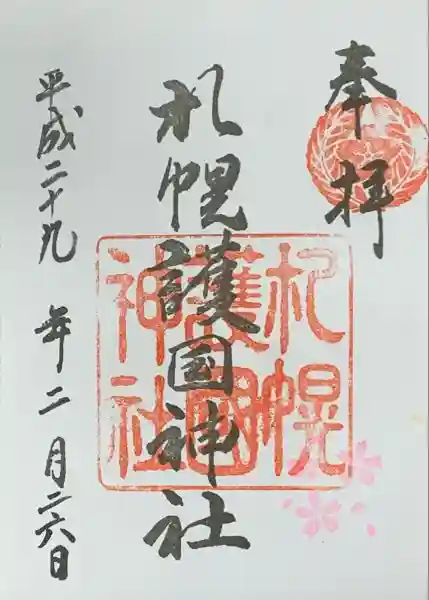 奉拝
札幌護国神社
札幌
護國
神社
平成二十九年二月二六日